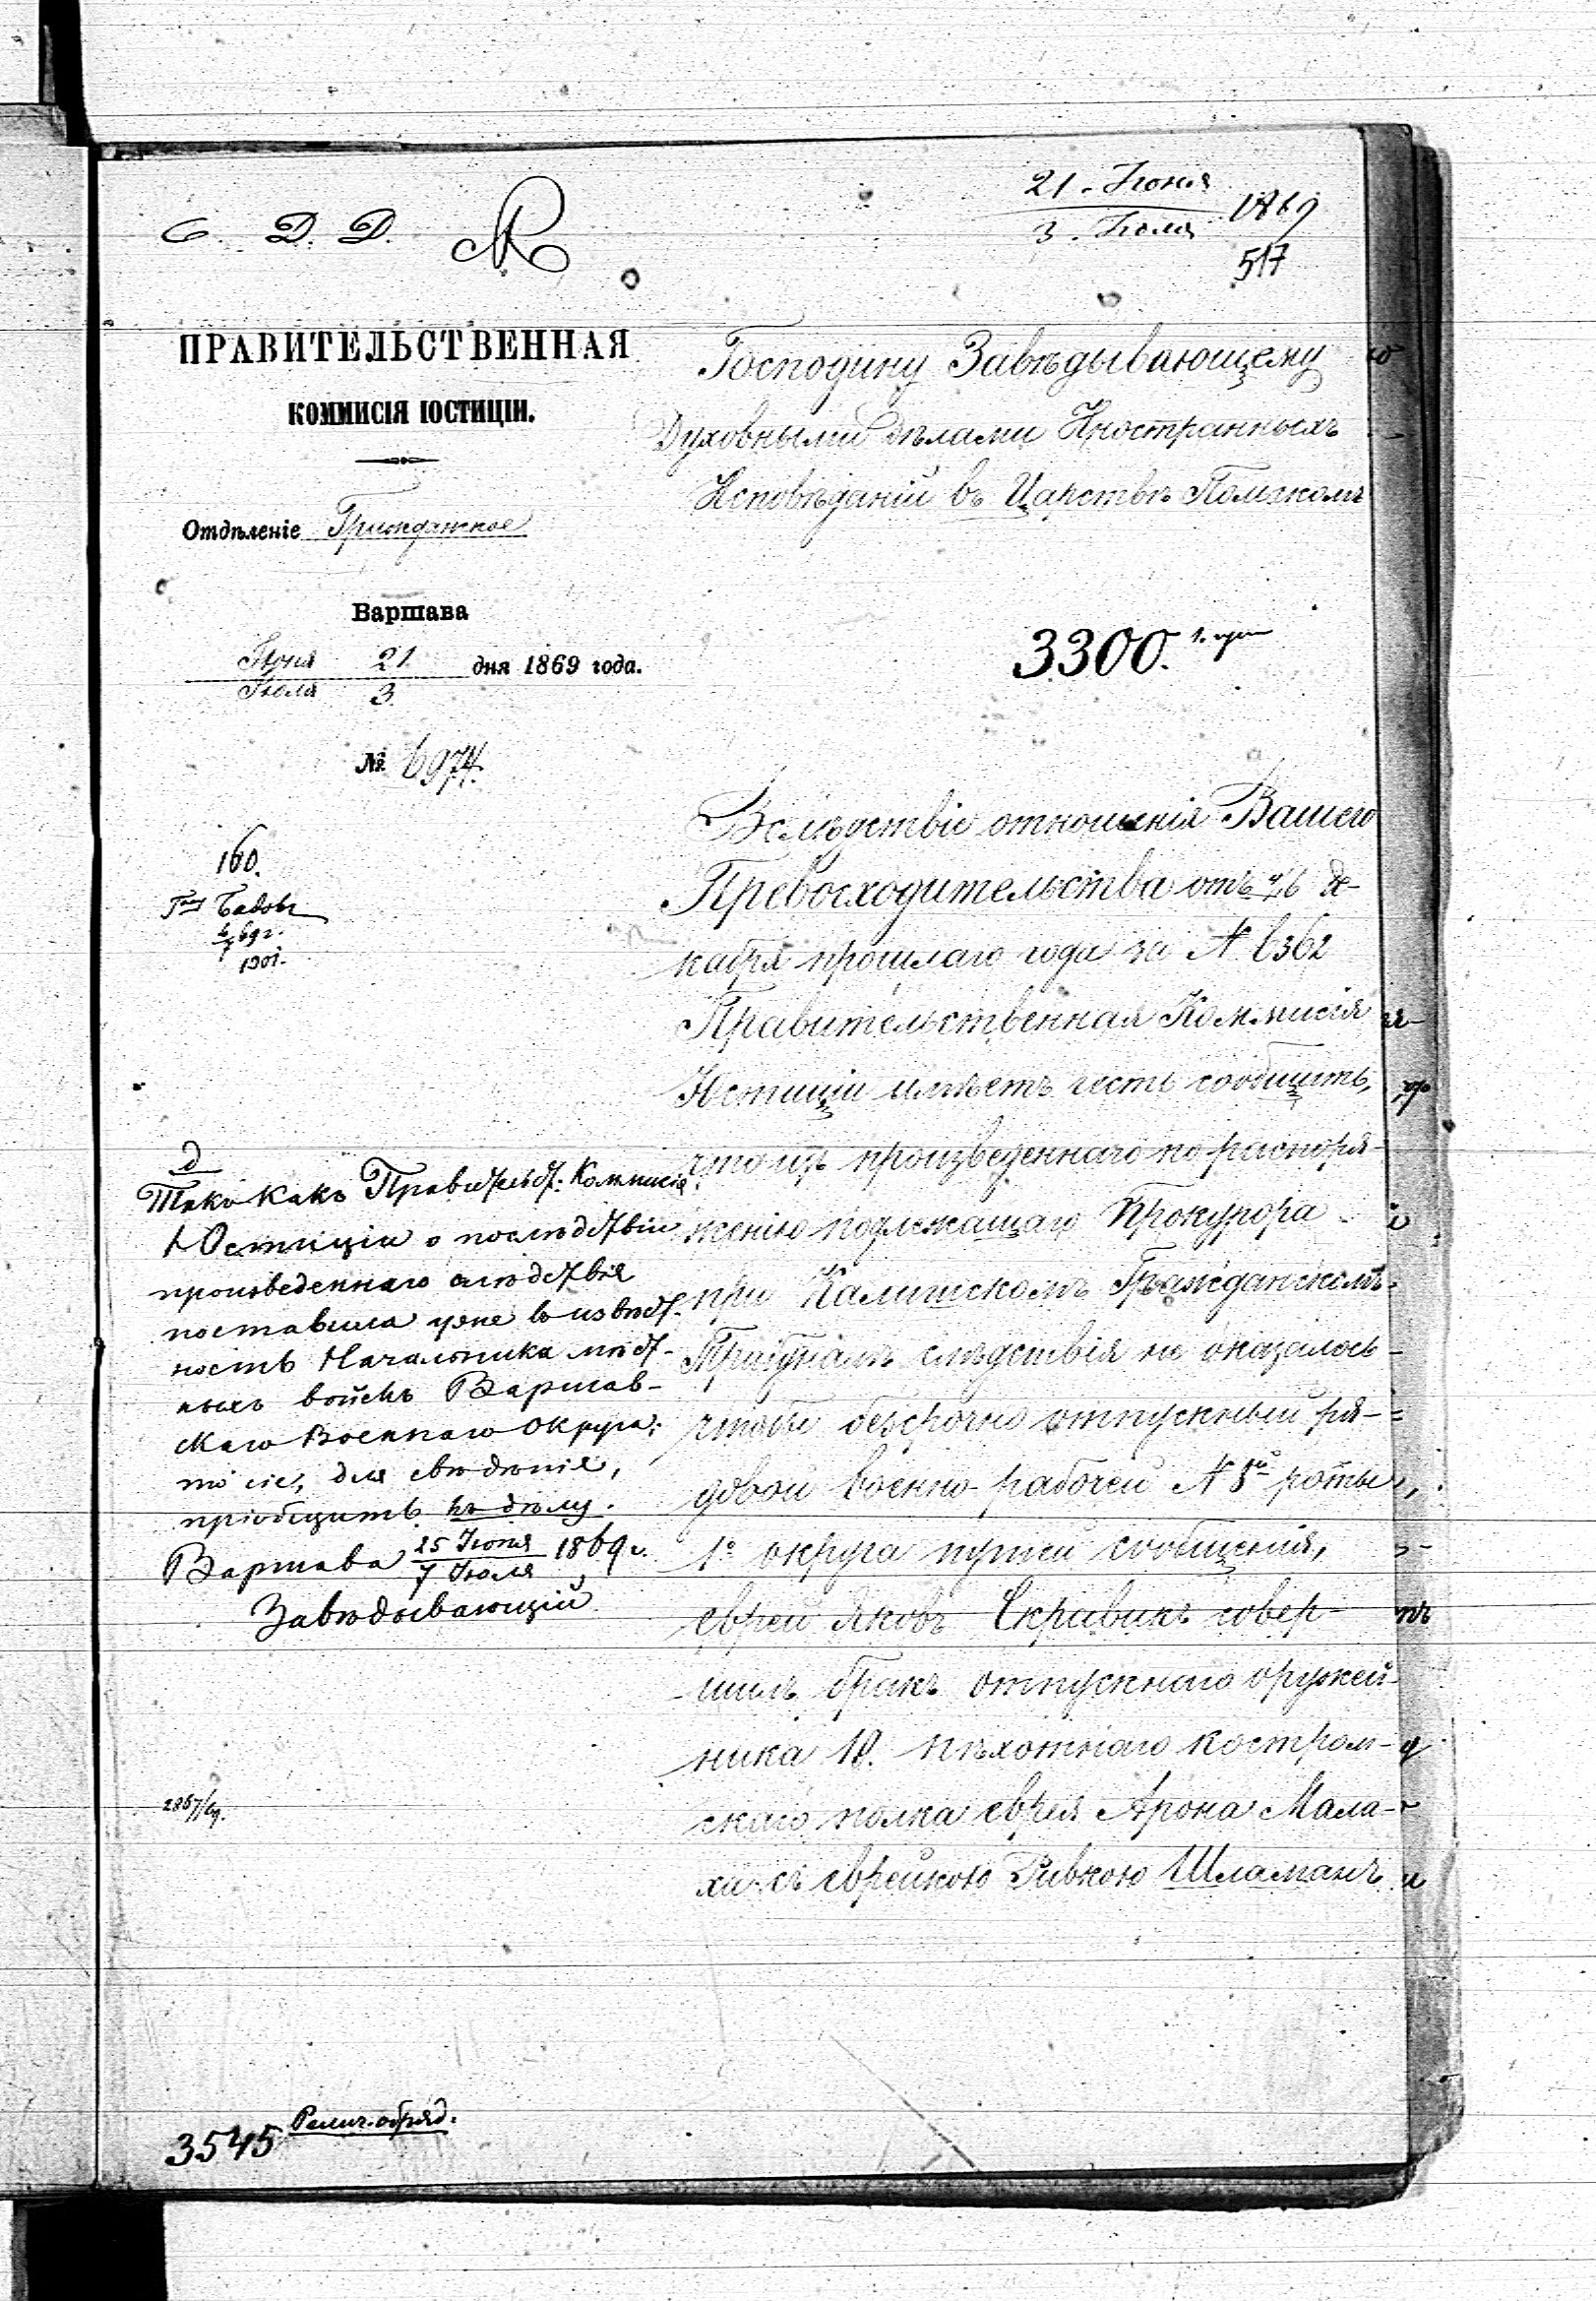 С. Д. Д.
21 - Іюня
3 - Іюля 1869
517
ПРАВИТЕЛЬСТВЕННАЯ
КОММИСІЯ ЮСТИЦІИ.
Отдѣленіе Гражданское
Варшава
Іюня 21
Іюля 3 дня 1869 года.
№ 6974.
160.
1901.
Господину Завѣдывающему
Духовными дѣлами Иностранныхъ
Исповѣданій въ Царствѣ Польскомъ
3300.
Вслѣдствіе отношенія Вашего
Превосходительства отъ Де-
кабря прошлаго года за № 6362
Правительственная Коммисія
Юстиціи имѣетъ честь сообщить,
что изъ произведеннаго по распоря-
женію подлежащаго Прокурора
при Калишскомъ Гражданскомъ
Трибуналѣ слѣдствія не оказалось
чтобы безсрочно отпускный ря-
довой военно-рабочей № 8й роты,
1о округа путей сообщенія,
еврей Яковъ Скравикъ совер-
шилъ бракъ отпускнаго оружей-
ника 19. пѣхотнаго костром-
скаго полка еврея Арона Мала-
ха съ еврейкою Ривкою Шламанъ
Такъ какъ Правительст: Коммисія
Юстиціи о послѣдствіи
произведеннаго слѣдствія
поставила уже въ извѣст-
ность Начальника мѣст-
ныхъ войскъ Варшав-
скаго Военнаго Округа;
то сіе, для свѣдѣнія,
пріобщить къ дѣлу.
Варшава 25 Іюня
7 Іюля 1869 г.
Завѣдывающій
2867/69.
3545 Религ. обряд.